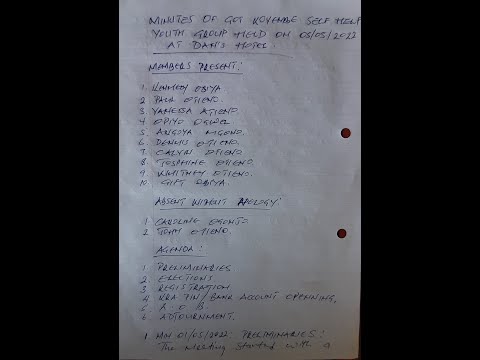 MINUTES OF GOT KOVENBE SELF HELP
YOUTH GROUP HELD ON 05/05/2022
AT DAN'S HOTEL
MEMBERS PRESENT:
1. KENNEDY OBIYA
2. PAUL OTIENO.
3. VANESSA ATIENO.
4. OPIYO
5. ANGOYA
6. DENNIS OTIENO.
7. CALVIN OTIENO
8. JOSPHINE OTIENO.
9. WHITNEY OTIENO.
10. GIFT OBIYA.
ABSENT WITHOUT APOLOGY:
1. CAROLINE
2. TOMM OTIENO.
AGENDA:
1 PRELIMINARIES
2 ELECTIONS
3 REGISTRATION
4 KRA PIN/BANK ACCOUNT OPENNING.
5. A.O.B
6. ADJOURNMENT.
1 MIN 01/05/2022: PRELIMINARIES:
The meeting started with a